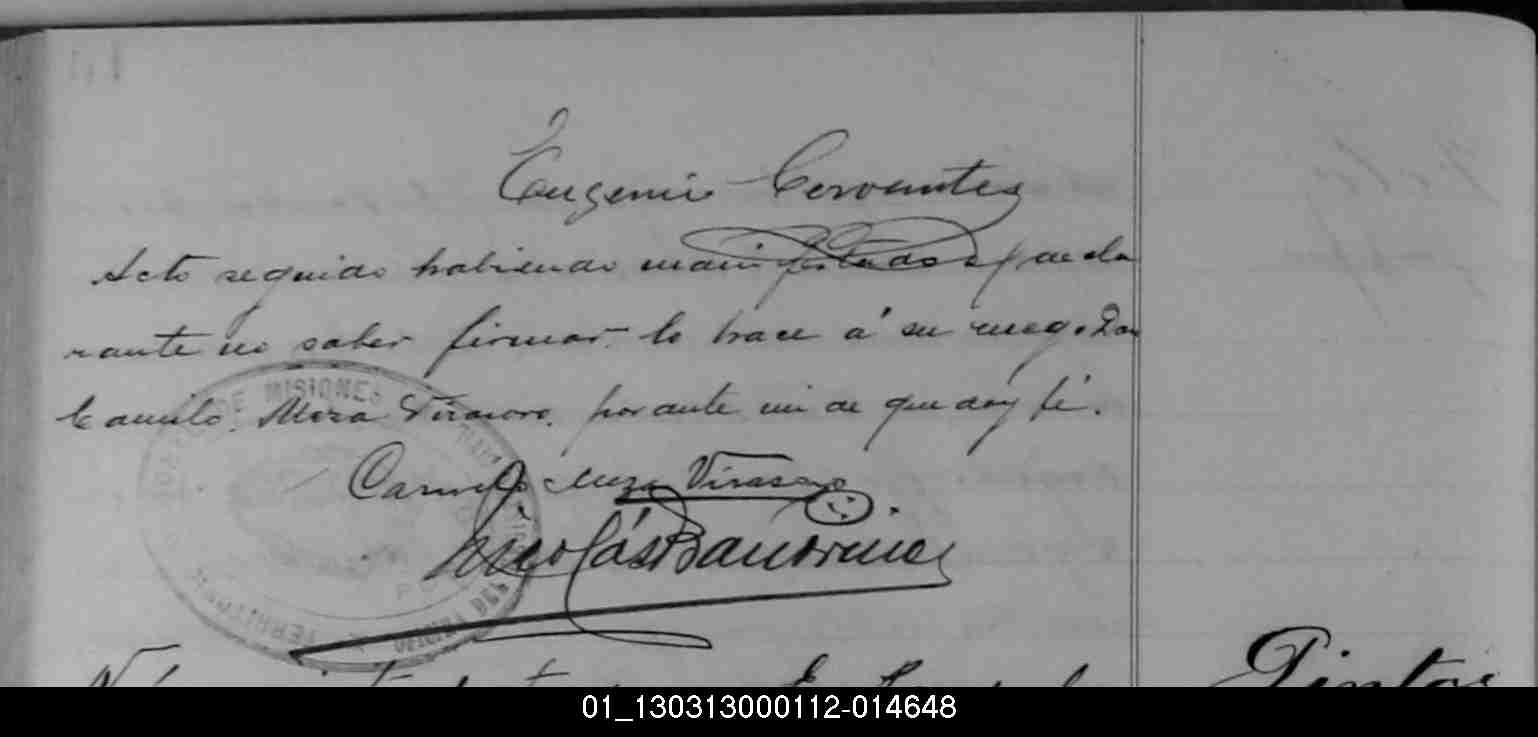 Eugenio Cervantes
Acto seguido habiendo manifestado q̃ decla
rante no saber firmar lo hace á su ruego Don
Camilo Meza Virasoro, por ante mi de que doy fé.
Camilo Meza Virasoro
Nicolás
DE MISIONES
TERRITORIO
Pintos
01_130313000112-014648